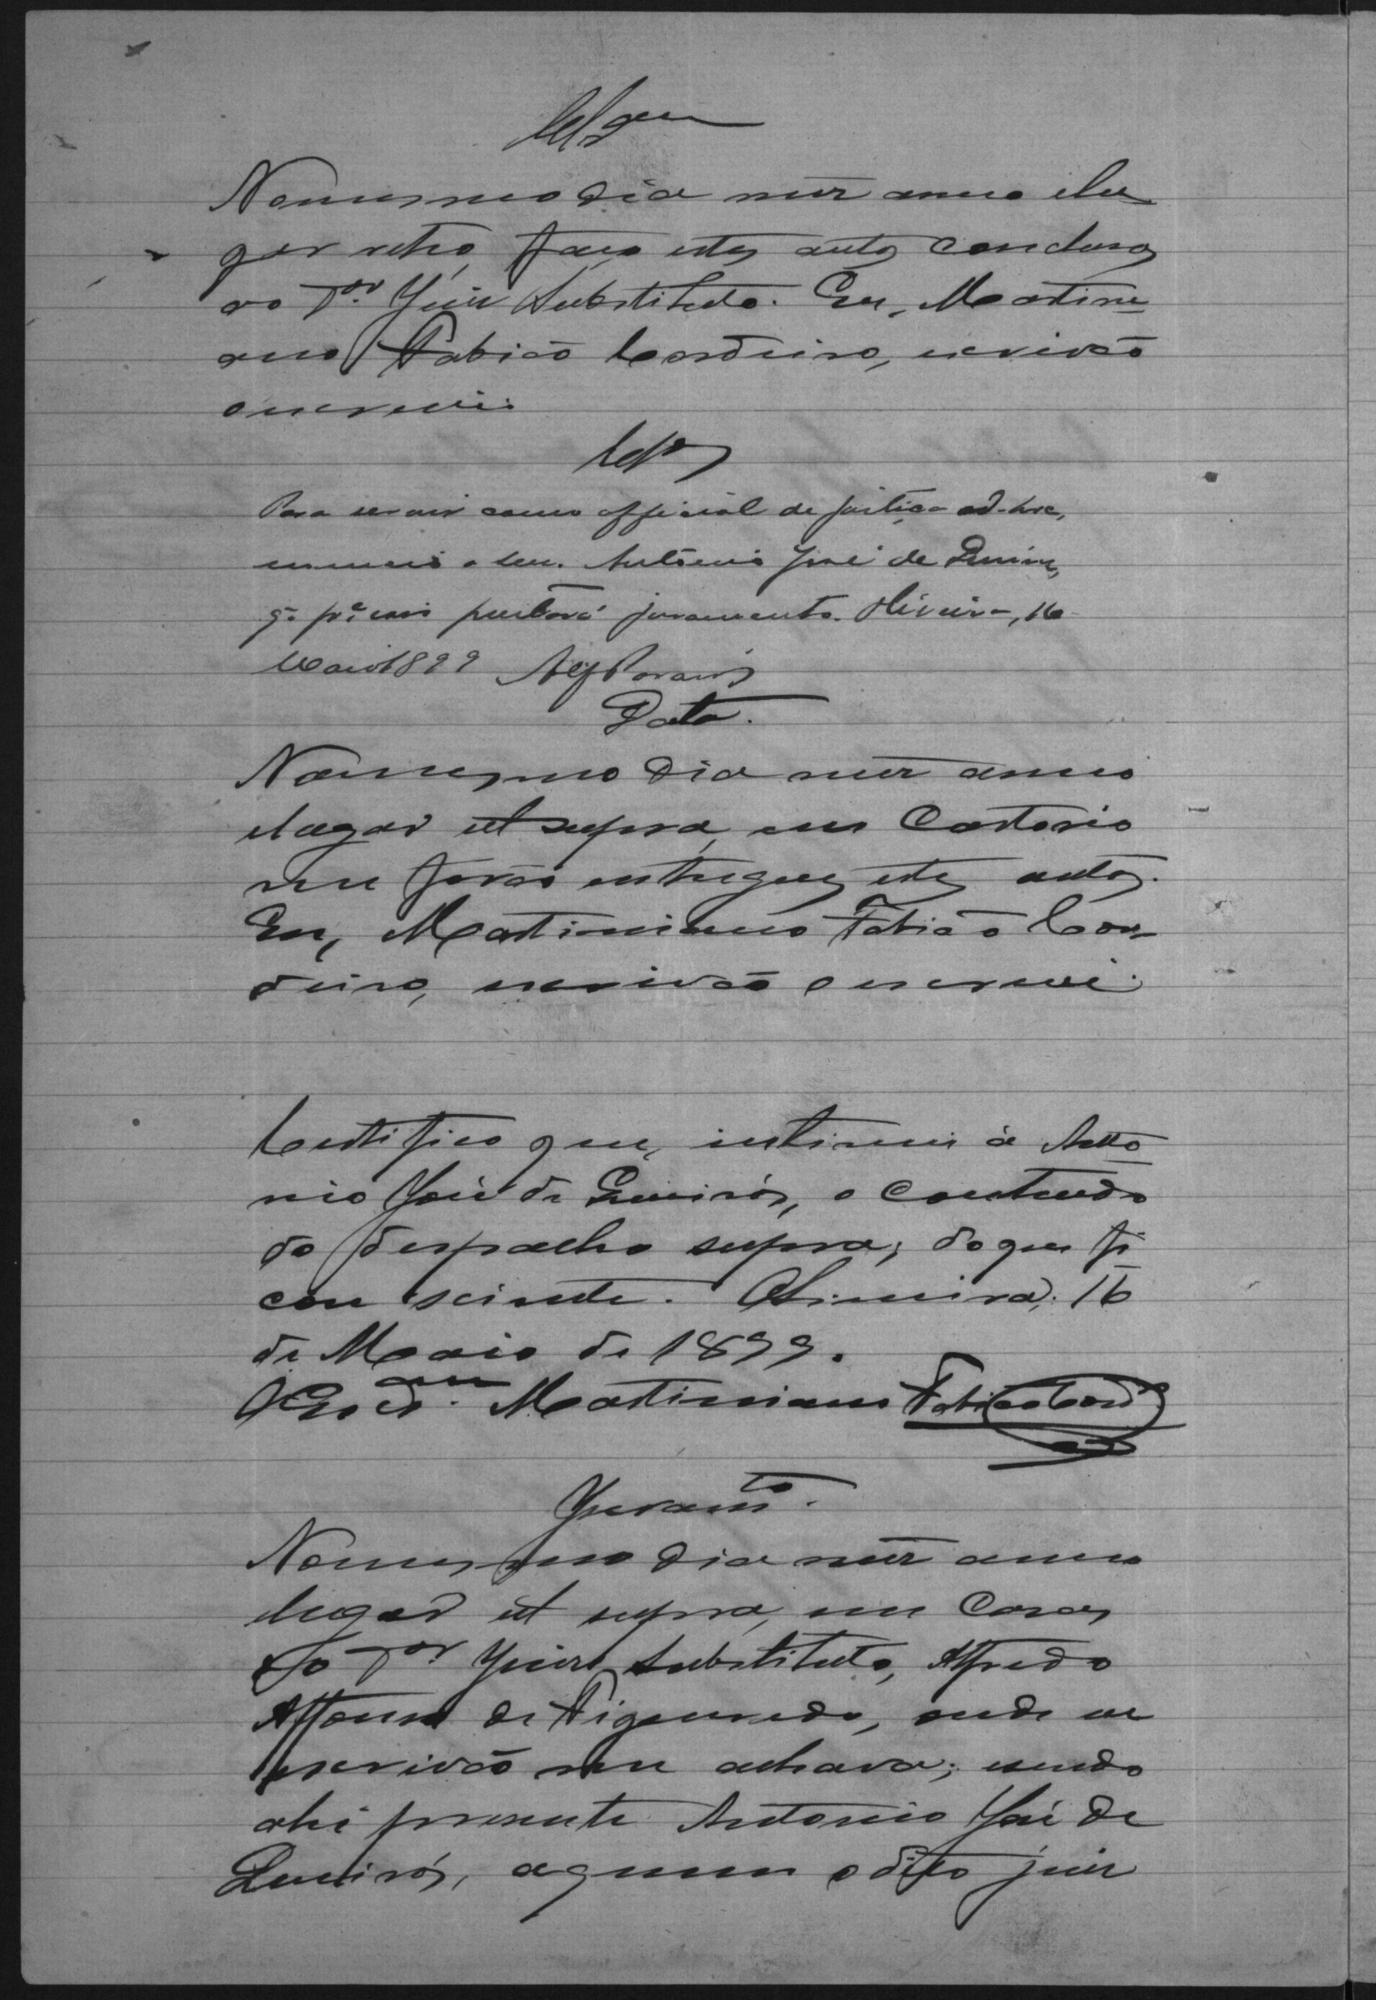 Clsam
No mesmo dia mez anno e lu
gar retro, faço estes autos conclusos
ao 1.or Juiz Substituto. Eu, Martimi
ano Fabião Cordeiro, escrivão
o escrevi.
Clsos
Para servir como official de justiça ad-hoc,
nomeio o sen. Antonio José de Queiroz,
q. prestará juramento. Oliveira, 16
Maio 1899
Data.
No mesmo dia mez anno
e lugar ut supra, em Cartorio
me forão entregues estes autos.
Eu, Martimiano Fabião Cor-
deiro, escrivão o escrevi.
Certifico que, intimei á Anto
nio José de Queirós, o conteudo
do despacho supra; do que fi
cou sciente. Oliveira, 16
de Maio de 1899.
O Escam. Martimiano Fabião Cord.
Juramto.
No mesmo dia mez anno
lugar ut supra, em Casas
do 1.or Juiz Substituto, Alfredo
Affonso de Figueredo, onde eu
escrivão me achava; e sendo
ahi presente Antonio José de
Queirós, a quem o dito juiz